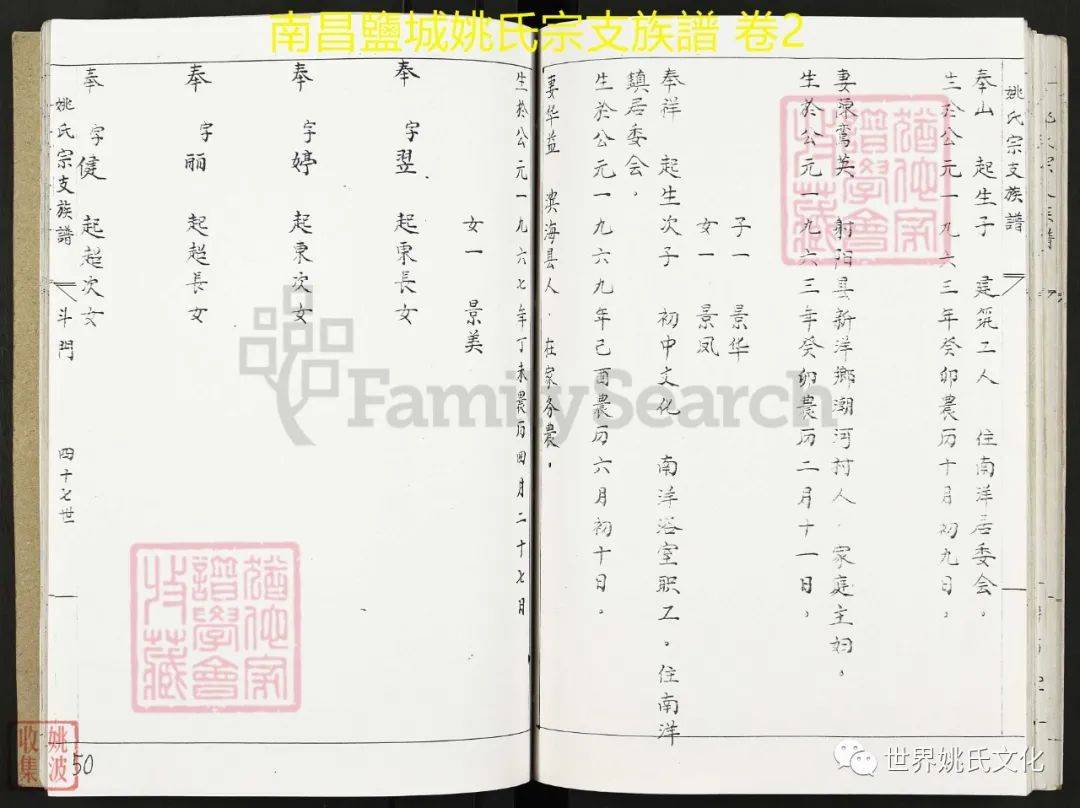 南昌鹽城姚氏宗支族譜 卷2
姚氏宗支族譜
奉山 起生子 建筑工人 住南洋居委会。
生於公元一九六三年癸卯農历十月初九日。
妻陳鸾英 射阳县新洋鄉潮河村人.家庭主妇。
生於公元一九六三年癸卯農历二月十一日。
子一 景华
女一 景凤
奉祥 起生次子 初中文化 南洋浴室职工。住南洋
鎮居委会。
生於公元一九六九年己酉農历六月初十日。
妻华益 滨海县人.在家务農。
生於公元一九六七年丁未農历四月二十七日
女一 景美
奉 字翌 起東長女
奉 字婷 起東次女
奉 字丽 起超長女
奉 字健 起超次女
姚氏宗支族譜 斗門 四十七世
50
姚波
收集
猶他家
譜學會
收藏
猶他家
譜學會
收藏
FamilySearch
世界姚氏文化